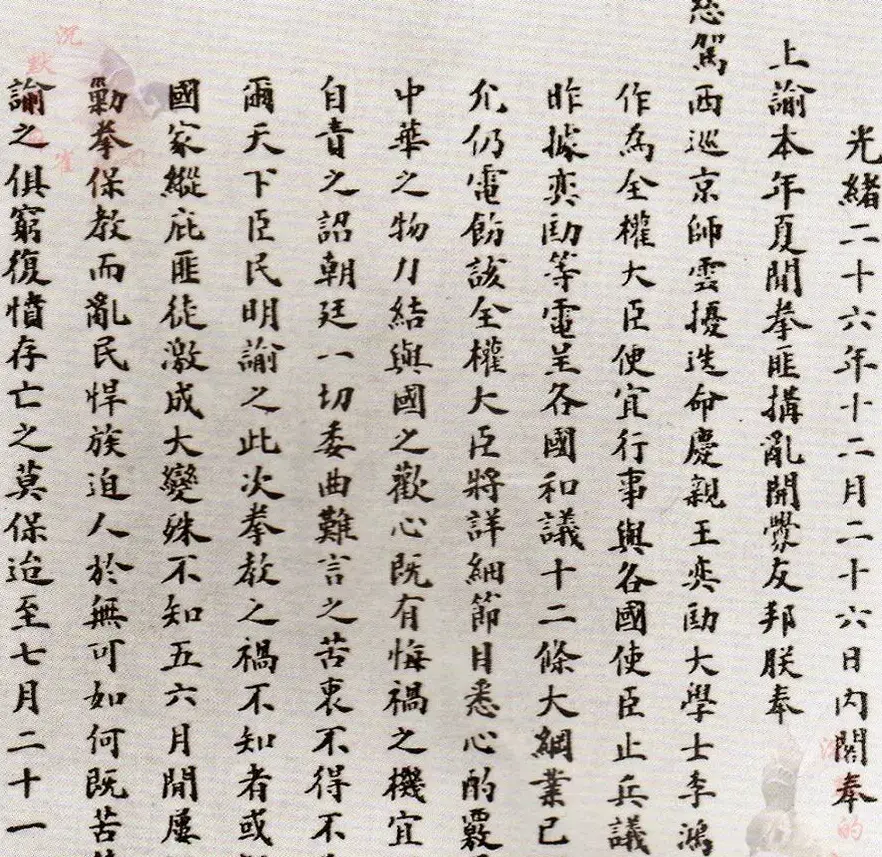 光緒二十六年十二月二十六日內閣奉
上諭本年夏閒拳匪搆亂開釁友邦朕奉
慈駕西巡京師雲擾迭命慶親王奕劻大學士李鴻
作為全權大臣便宜行事與各國使臣止兵議
昨據奕劻等電呈各國和議十二條大綱業已
允仍電飭該全權大臣將詳細節目悉心酌覈
中華之物力結與國之歡心既有悔禍之機宜
自責之詔朝廷一切委曲難言之苦衷不得不
爾天下臣民明諭之此次拳教之禍不知者或
國家縱庇匪徒激成大變殊不知五六月閒屢
勦拳保教而亂民悍族迫人於無可如何既苦
諭之俱窮復憤存亡之莫保迨至七月二十一
沉默
雀
的